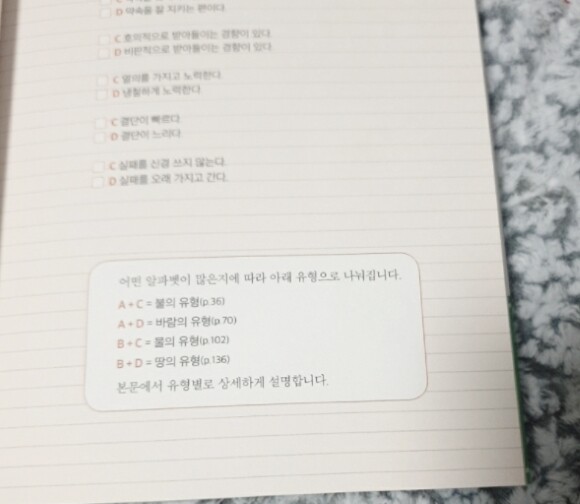 D 약속을 잘 지키는 편이다.
C 호의적으로 받아들이는 경향이 있다.
D 비판적으로 받아들이는 경향이 있다.
C 열의를 가지고 노력한다.
D 냉철하게 노력한다.
C 결단이 빠르다.
D 결단이 느리다.
C 실패를 신경 쓰지 않는다.
D 실패를 오래 가지고 간다.
어떤 알파벳이 많은지에 따라 아래 유형으로 나눠집니다.
A + C = 불의 유형(p.36)
A + D = 바람의 유형(p.70)
B + C = 물의 유형(p.102)
B + D = 땅의 유형(p.136)
본문에서 유형별로 상세하게 설명합니다.